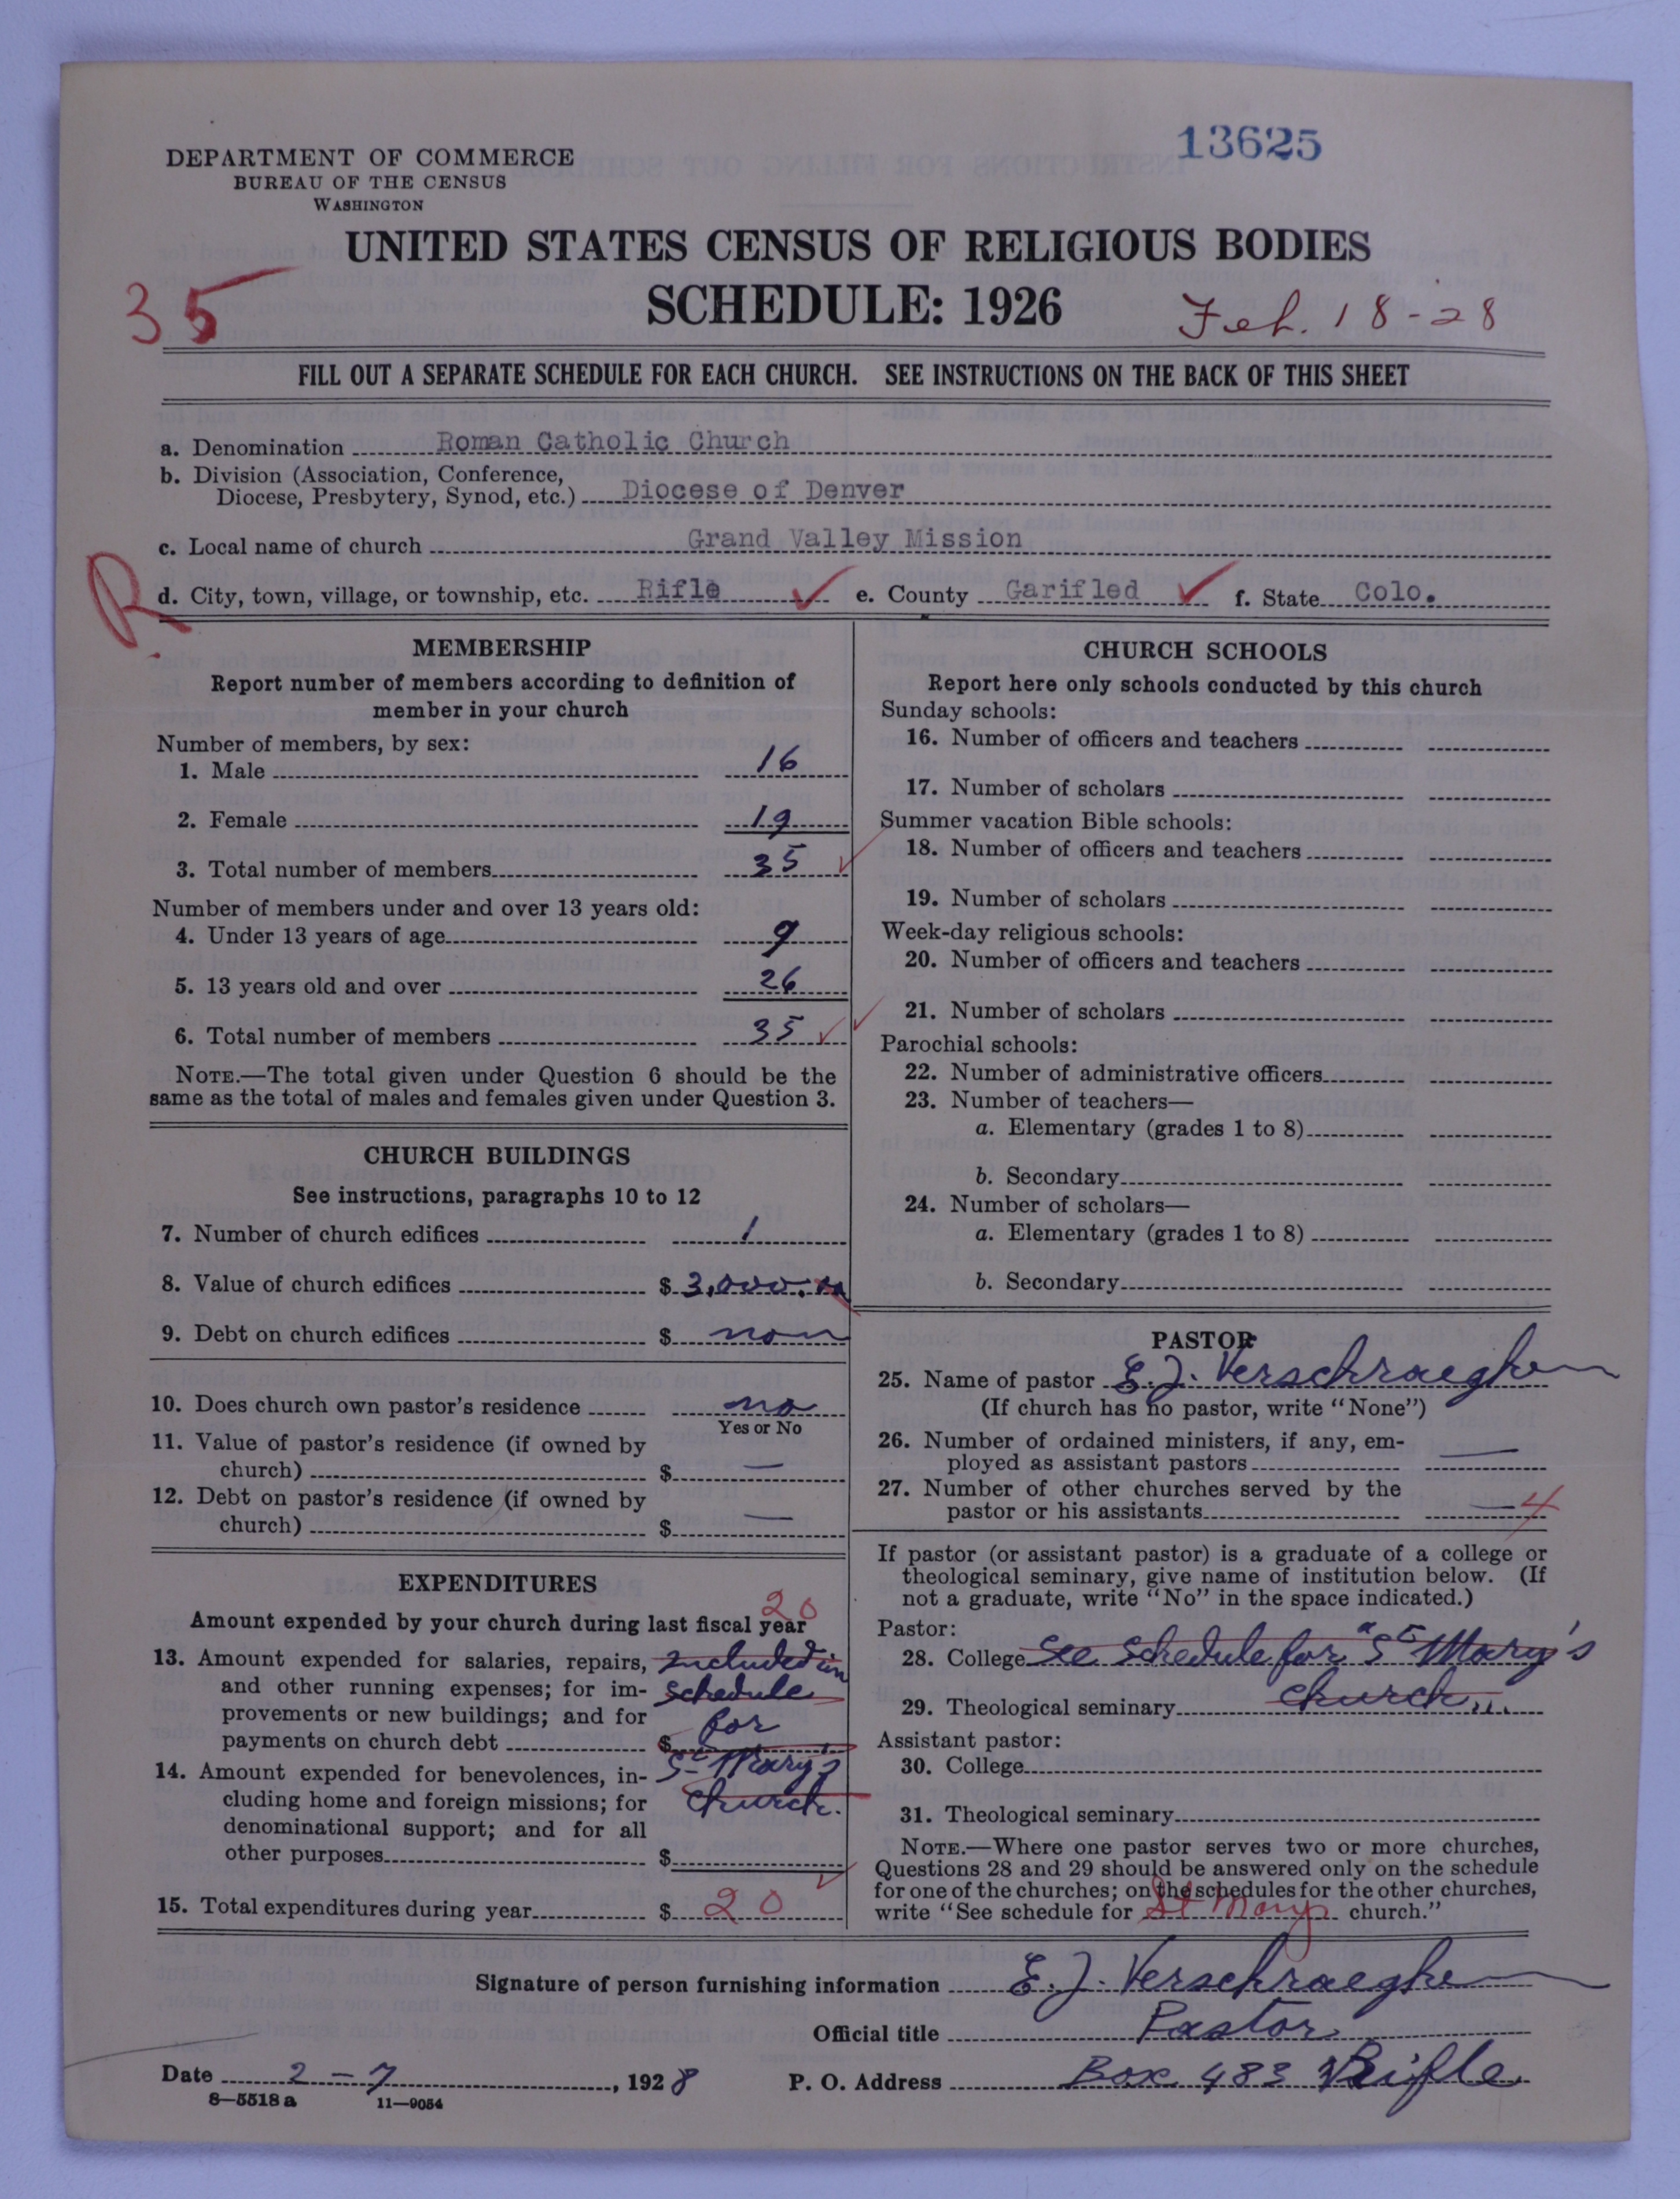 13625
DEPARTMENT OF COMMERCE
BUREAU OF THE CENSUS
WASHINGTON
UNITED STATES CENSUS OF RELIGIOUS BODIES
35
SCHEDULE: 1926
Feb. 18-28
FILL OUT A SEPARATE SCHEDULE FOR EACH CHURCH. SEE INSTRUCTIONS ON THE BACK OF THIS SHEET
a. Denomination Roman Catholic Church
b. Division (Association, Conference,
Diocese, Presbytery, Synod, etc.) Diocese of Denver
c. Local name of church Grand Valley Mission
R
d. City, town, village, or township, etc. Rifle ✓ e. County Garifled ✓ f. State Colo.
MEMBERSHIP
Report number of members according to definition of
member in your church
Number of members, by sex:
1. Male 16
2. Female 19
3. Total number of members 35 ✓
Number of members under and over 13 years old:
4. Under 13 years of age 9
5. 13 years old and over 26
6. Total number of members 35 ✓ ✓
NOTE.—The total given under Question 6 should be the
same as the total of males and females given under Question 3.
CHURCH BUILDINGS
See instructions, paragraphs 10 to 12
7. Number of church edifices 1
8. Value of church edifices $ 3,000.00
9. Debt on church edifices $ non
10. Does church own pastor's residence no
Yes or No
11. Value of pastor's residence (if owned by
church) $ —
12. Debt on pastor's residence (if owned by
church) $ —
EXPENDITURES
Amount expended by your church during last fiscal year
20
13. Amount expended for salaries, repairs, Included in
and other running expenses; for im- schedule
provements or new buildings; and for for
payments on church debt $
14. Amount expended for benevolences, in- St Mary's
cluding home and foreign missions; for Church.
denominational support; and for all
other purposes $
15. Total expenditures during year $ 20
CHURCH SCHOOLS
Report here only schools conducted by this church
Sunday schools:
16. Number of officers and teachers
17. Number of scholars
Summer vacation Bible schools:
18. Number of officers and teachers
19. Number of scholars
Week-day religious schools:
20. Number of officers and teachers
21. Number of scholars
Parochial schools:
22. Number of administrative officers
23. Number of teachers—
a. Elementary (grades 1 to 8)
b. Secondary
24. Number of scholars—
a. Elementary (grades 1 to 8)
b. Secondary
PASTOR
25. Name of pastor E. J. Verschraeghen
(If church has no pastor, write "None")
26. Number of ordained ministers, if any, em-
ployed as assistant pastors —
27. Number of other churches served by the
pastor or his assistants — 4
If pastor (or assistant pastor) is a graduate of a college or
theological seminary, give name of institution below. (If
not a graduate, write "No" in the space indicated.)
Pastor:
28. College See Schedule for "St Mary's
29. Theological seminary Church."
Assistant pastor:
30. College
31. Theological seminary
NOTE.—Where one pastor serves two or more churches,
Questions 28 and 29 should be answered only on the schedule
for one of the churches; on the schedules for the other churches,
write "See schedule for St Marys church."
Signature of person furnishing information E. J. Verschraeghen
Official title Pastor
Date 2-7, 1928 P. O. Address Box 483 Rifle
8—5518 a 11—9054